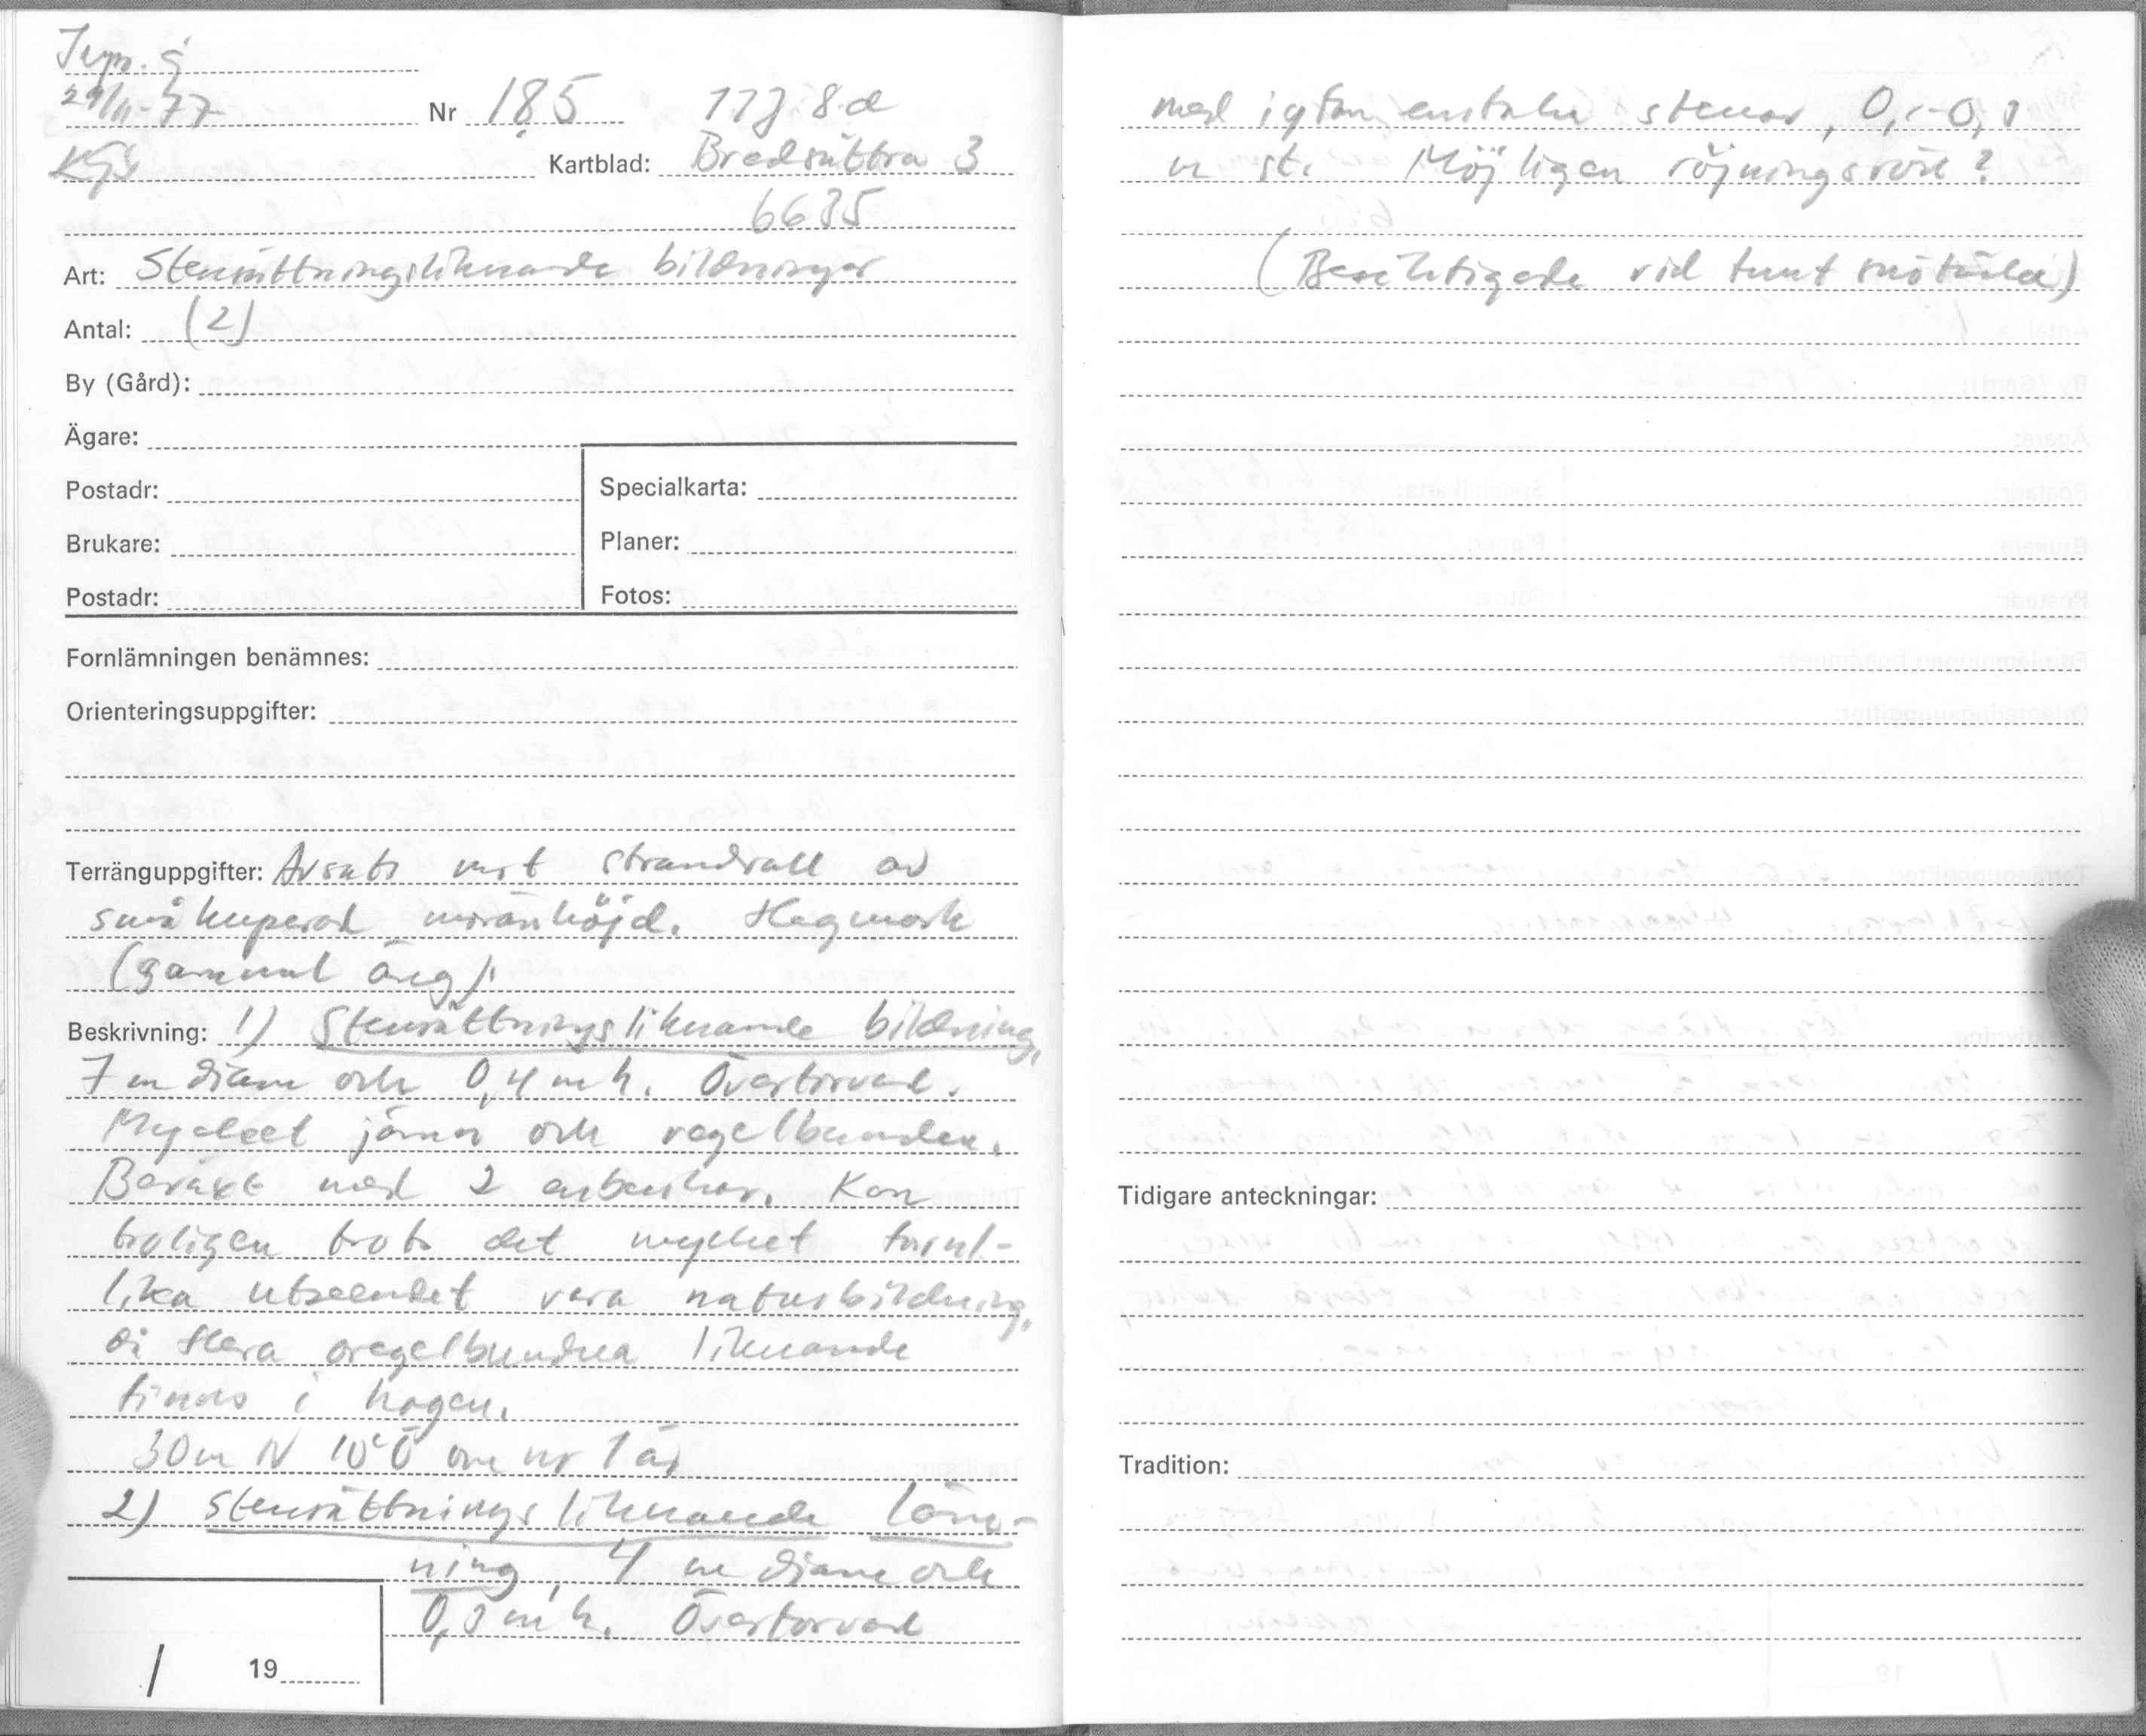 29/11-77
Nr 185 11J 8d
KGS Kartblad: Bredsättra 3
6635
Art: Stensättningsliknande bildningar
Antal: (2)
By (Gård):
Ägare:
Postadr:
Specialkarta:
Brukare:
Planer:
Postadr:
Fotos:
Fornlämningen benämnes:
Orienteringsuppgifter:
Terränguppgifter: Avsats mot strandvall av
småkuperad moränhöjd. Hagmark
(gammal äng).
Beskrivning: 1) Stensättningsliknande bildning,
7 m diam och 0,4 m h. Övertorvad.
Mycket jämn och regelbunden.
Beväxt med 2 enbuskar. Kan
troligen trots det mycket fornl-
lika utseendet vara naturbildning,
då flera oregelbundna liknande
finns i hagen.
30 m N 10° Ö om nr 1 är
2) Stensättningsliknande läm-
ning, 4 m diam och
0,3 m h. Övertorvad
/ 19
med i ytan enstaka stenar, 0,1-0,3
m st. Möjligen röjningsröse?
(Besiktigade vid tunt snötäcke)
Tidigare anteckningar:
Tradition: